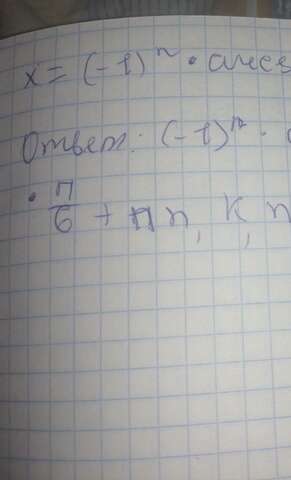 x = (-1)ⁿ · arcs
Ответ: (-1)ⁿ ·
· π/6 + πn, k, n